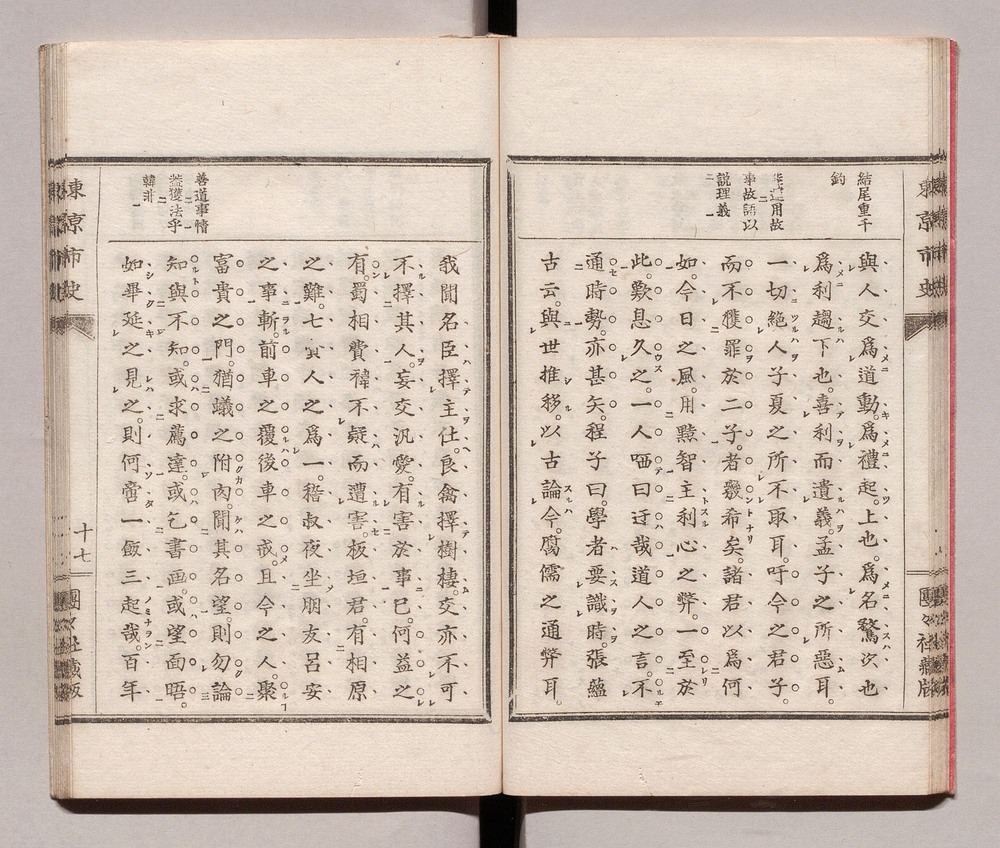 結尾重千
鈞
用故
事故語以
説理義
與人交爲道動。爲禮起。上也。爲名驚次也
爲利趨下也。喜利而遺義。孟子之所惡耳。
一切絶人子夏之所不取耳。吁今之君子。
而不獲罪於二子。者幾希矣。諸君以爲何
如。今日之風。用黠智主利心之弊。一至於
此。歎息久之。一人唖曰迂哉道人之言。不
通時勢。亦甚矣。程子曰。學者要識時。張蘊
古云。與世推移。以古論今。腐儒之通弊耳。
東京市史
團々社藏版
我聞名臣擇主仕。良禽擇樹棲。交亦不可
不擇其人。妄交汎愛。有害於事已。何益之
有。蜀相費禕不疑而遭害。板垣君。有相原
之難。七賢人之爲一。嵆叔夜坐朋友呂安
之事斬。前車之覆後車之戒。且今之人。聚
富貴之門。猶蟻之附肉。聞其名望。則勿論
知與不知。或求薦達。或乞書画。或望面晤。
如畢延之見之。則何啻一飯三起哉。百年
善道事情
蓋獲法乎
韓非
東京市史
十七
團々社藏版